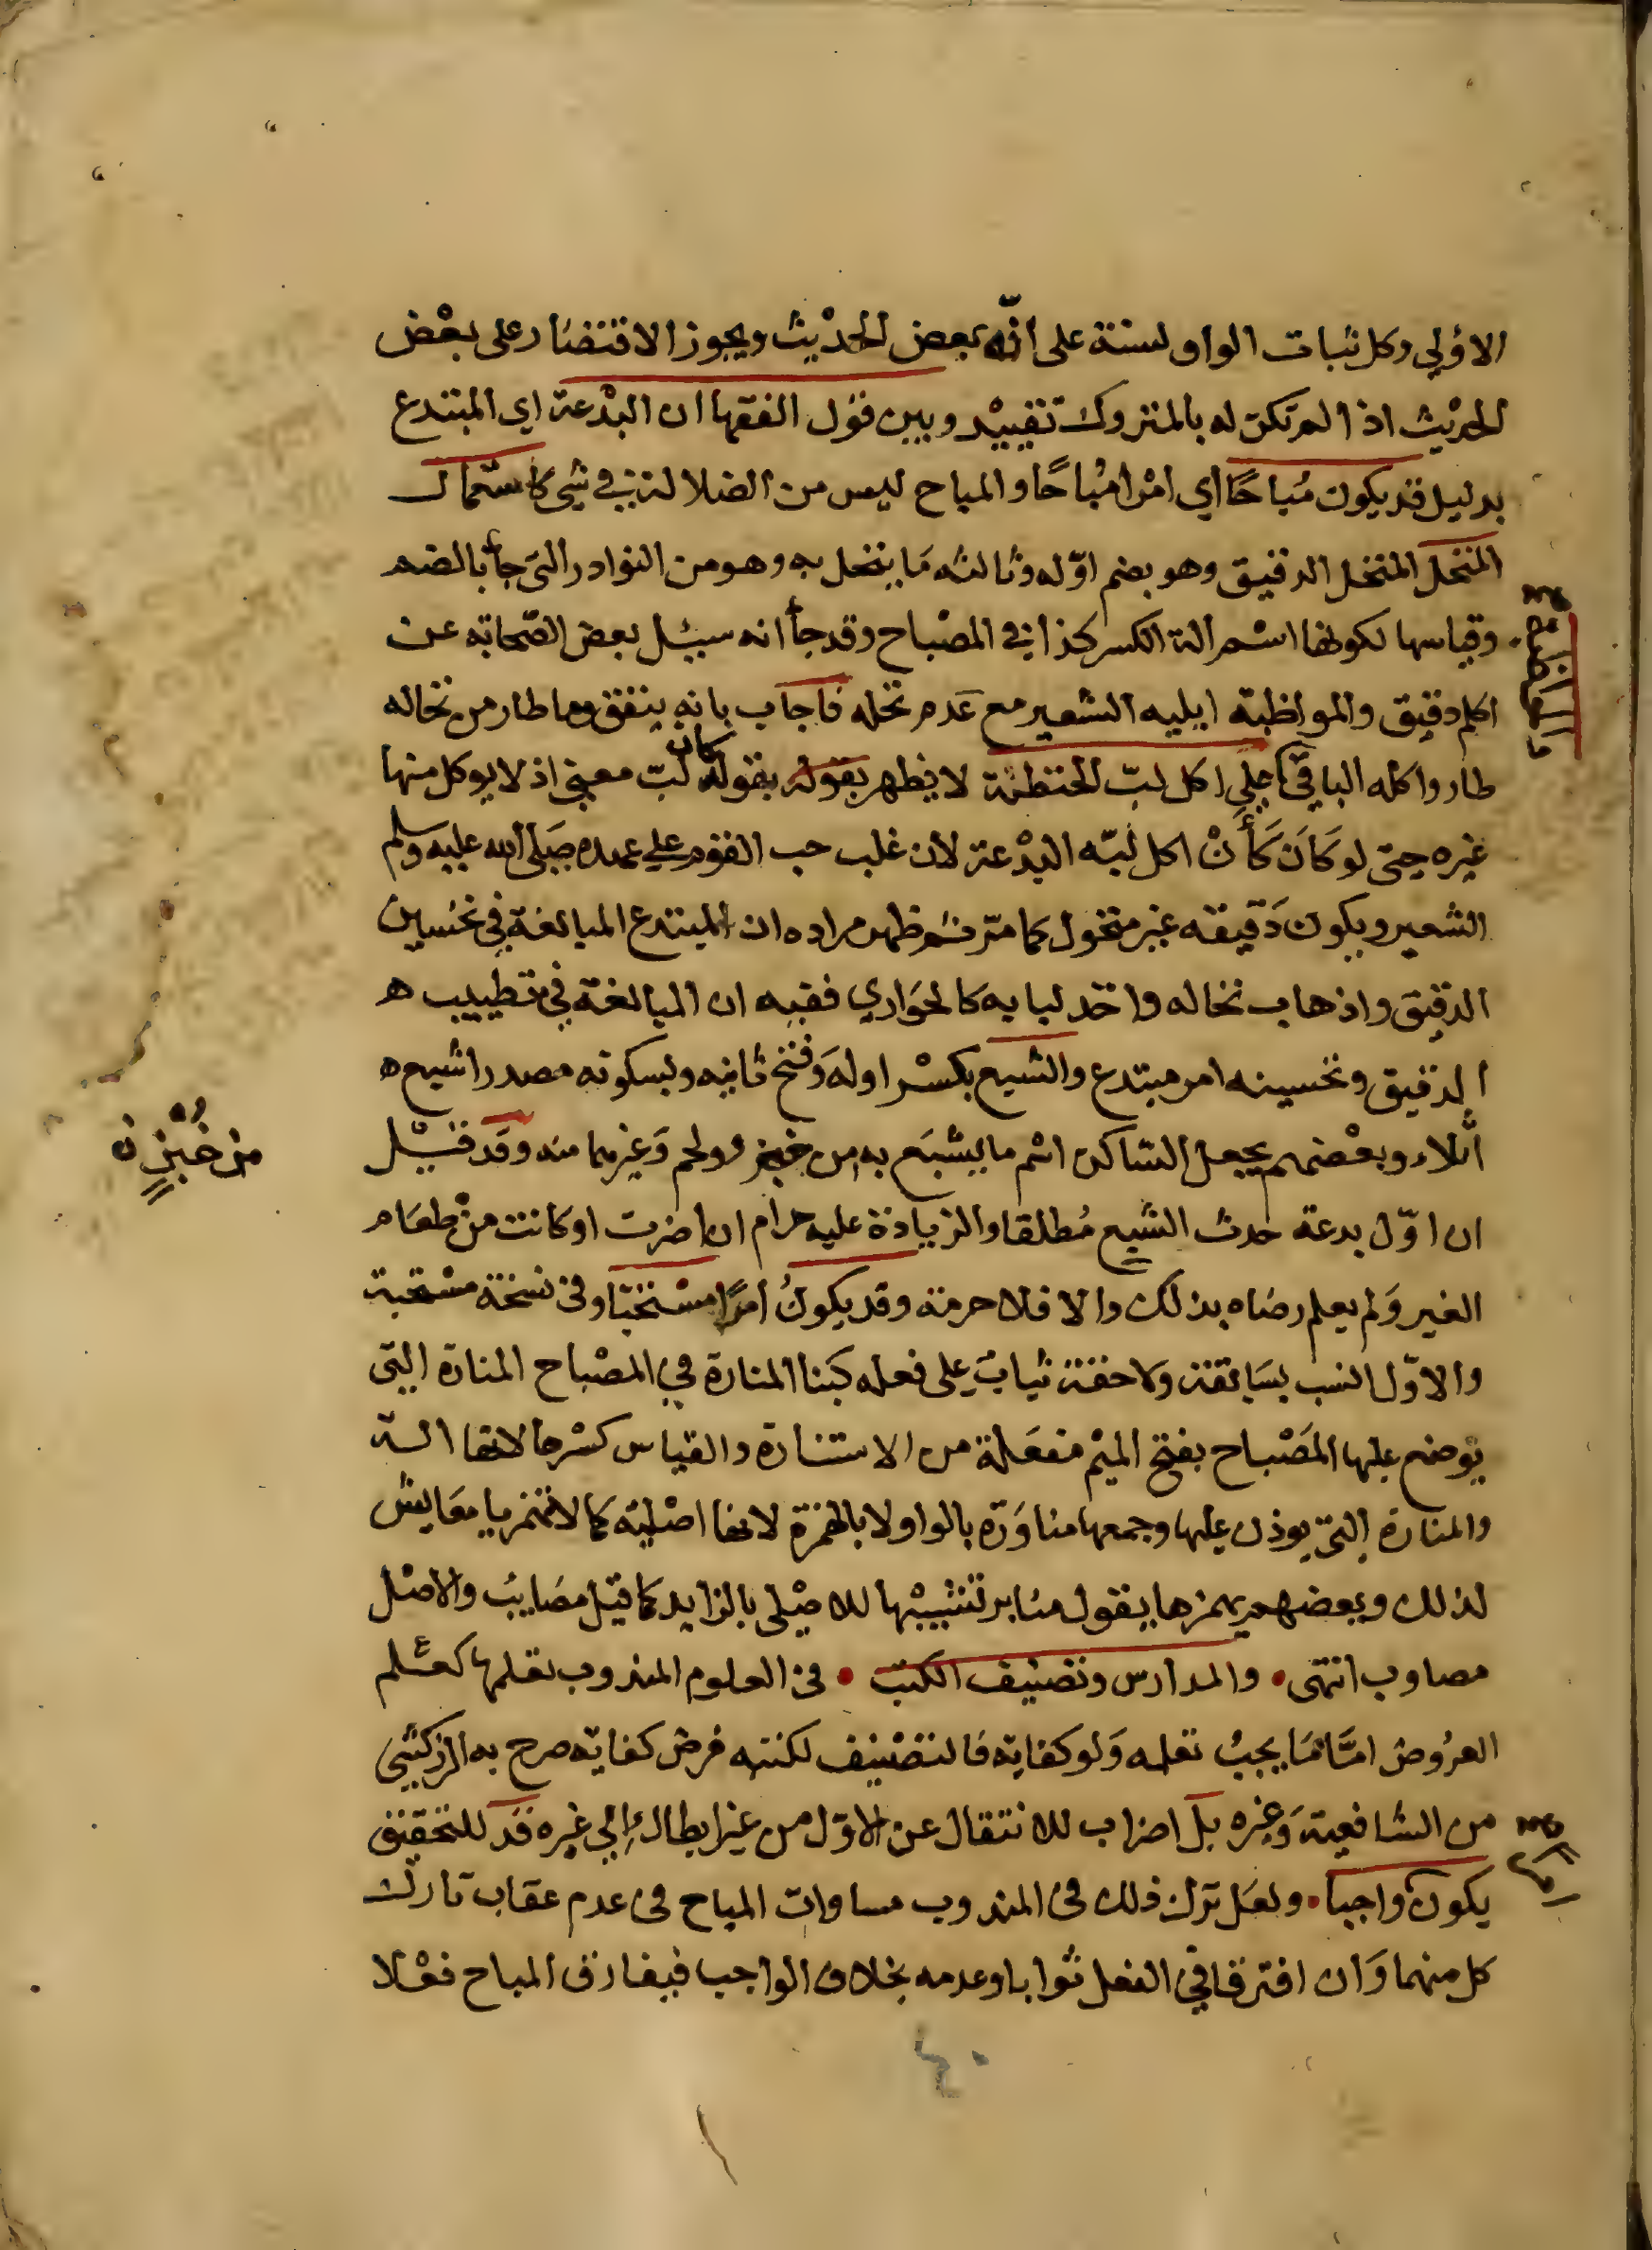 الاولي وكل ثبات الواو لسنة على انّه بعض الحديث ويجوز الاقتصار على بعْض
الحديث اذا لم تكن له بالمتروك تقييد وبين قول الفقها ان البدْعة اي المبتدع
بدليل قد يكون مُباحًا اي امْرا مُباحًا والمباح ليس من الضلالة في شي كاستعمال
المنخل المنخل الدقيق وهو بضم اوّله وثالثه مَا ينخل به وهو من النوادر التي جأ بالضم
وقياسها لكونها اسْم الة الكسر كذا في المصْباح وقد جأ انه سيئل بعض الصّحابة عن
اكلم دقيق والمواظبة ايليه الشعير مع عَدم نخله فاجاب بانه ينفق معا طار من نخاله
طار واكله الباقي علي اكل لبّ الحنطة لا يظهر بقوله بقوله كان لبّ معني اذ لا يوكل منها
غيره حتى لو كَانَ كَأنْ اكل لُبّه البدْعة لان غلب حب القوم علي عهده صَلى الله عليه وسلم
الشعير ويكون دَقيقه غير منخول كما مرّ ثم ظهر مراده ان المبتدع المبالغة في تحسين
الدقيق واذهاب نخاله واخد لبابه كالحوَاري ففيه ان المبالغة في تطييب ه
الدقيق وتحسينه امر مبتدع والشبع بكسْر اوله وَفتح ثانيه وبسكونه مصدر اشبع ه
املاء وبعْضهم يجعل الساكن اسْم ما يشبَع به من خبز ولحم وَغيرهما منه وقد قيل
من خُبْزٍ
ان اوّل بدعة حدث الشبع مُطلقا والزيادة عليه حرام ان اضرت او كانت منْ طعَام
الغير وَلم يعلم رضاه بذلك والا فلا حرمة وقد يكونُ امرًا مسْتحبّا وفى نسخة مسْتحبة
والاوّل انسب بسَابقة ولاحقة ثيابَ على فعله كبنا المنارة في المصْباح المنارة التى
يوضع عليها المصْباح بفتح الميْم مفعَلة من الاستنارة والقياس كسْرها لانها الـة
والمنارة التي يوذن عليها وجمعها مناوَرة بالواو لا بالهمزة لانها اصْلية كما لا تهمز يا معَايش
لذلك وبعضهم يهمزها يقول منابر تشبيْها للاصْلى بالزايد كما قيل مصَايب والاصْل
مصاوب انتهى . والمدارس وتصنيف الكتب . فى العلوم المندوب تعلمها كعلم
العرُوض امّا مَا يجبُ تعلمه وَلو كفاية فالتصْنيف لكتبه فرض كفاية صرح به الزركشي
من الشافعية وَغيره بل اضراب للانتقال عن الاوّل من غير ابطال الي غيره قد للتحقيق
يكون واجبا . ولعَل ترك ذلك فى المندوب مساوات المباح فى عدم عقاب تارك
كل منهما وَان افترقا في الفعل ثوابا وعدمه بخلاف الواجب فيفارق المباح فعْلا